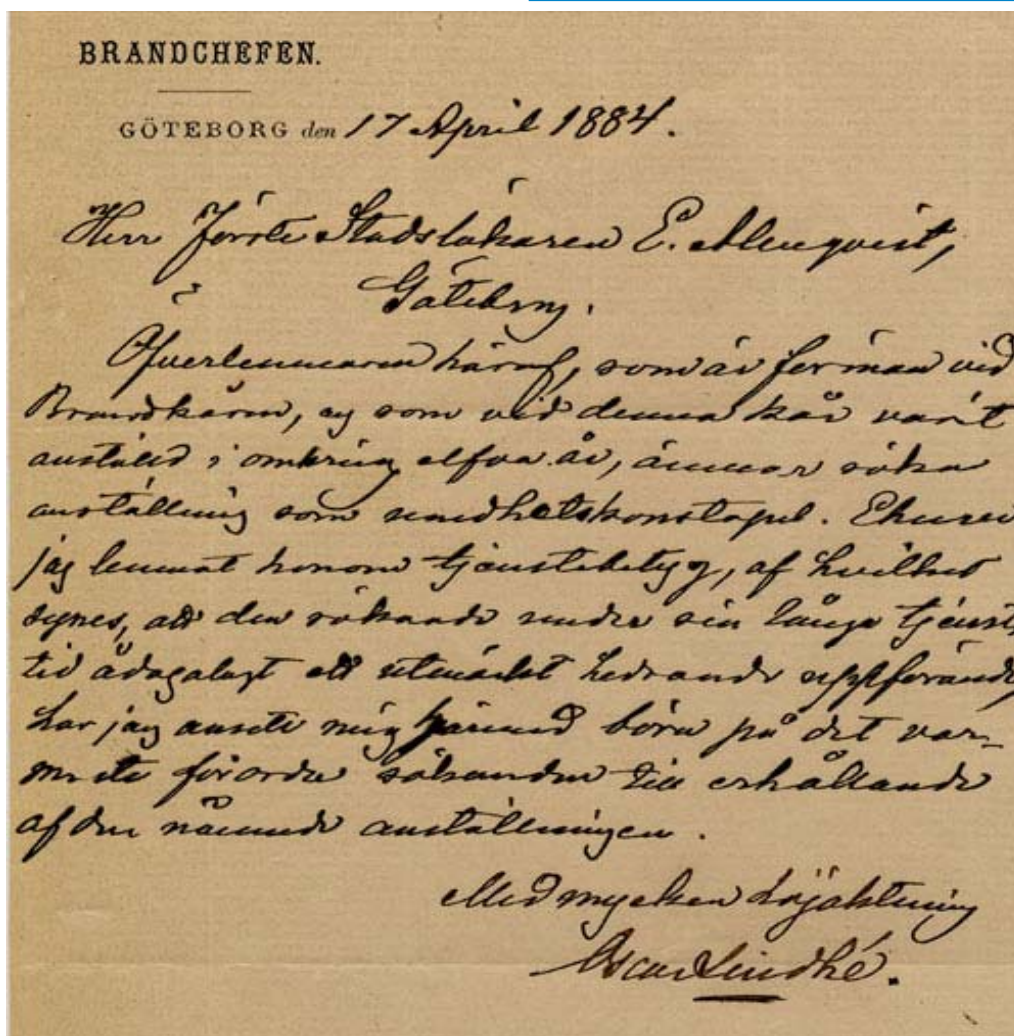 BRANDCHEFEN.
GÖTEBORG den 17 April 1884.
Herr Förste Stadsläkaren E. Almqvist,
Göteborg.
Öfverlemnaren häraf, som är förman vid
Brandkåren, og som vid denna kår varit
anställd i omkring elfva år, ämnar söka
anställning som sundhetskonstapel. Ehuru
jag lemnat honom tjenstebetyg, af hvilket
synes, att den sökande under sin långa tjenst
tid ådagalagt ett utmärkt hedrande uppförande,
har jag ansett mig härmed böra på det var-
maste förorda sökanden till erhållande
af den nämnde anställningen.
Med mycken högaktning
Oscar Lindhé.